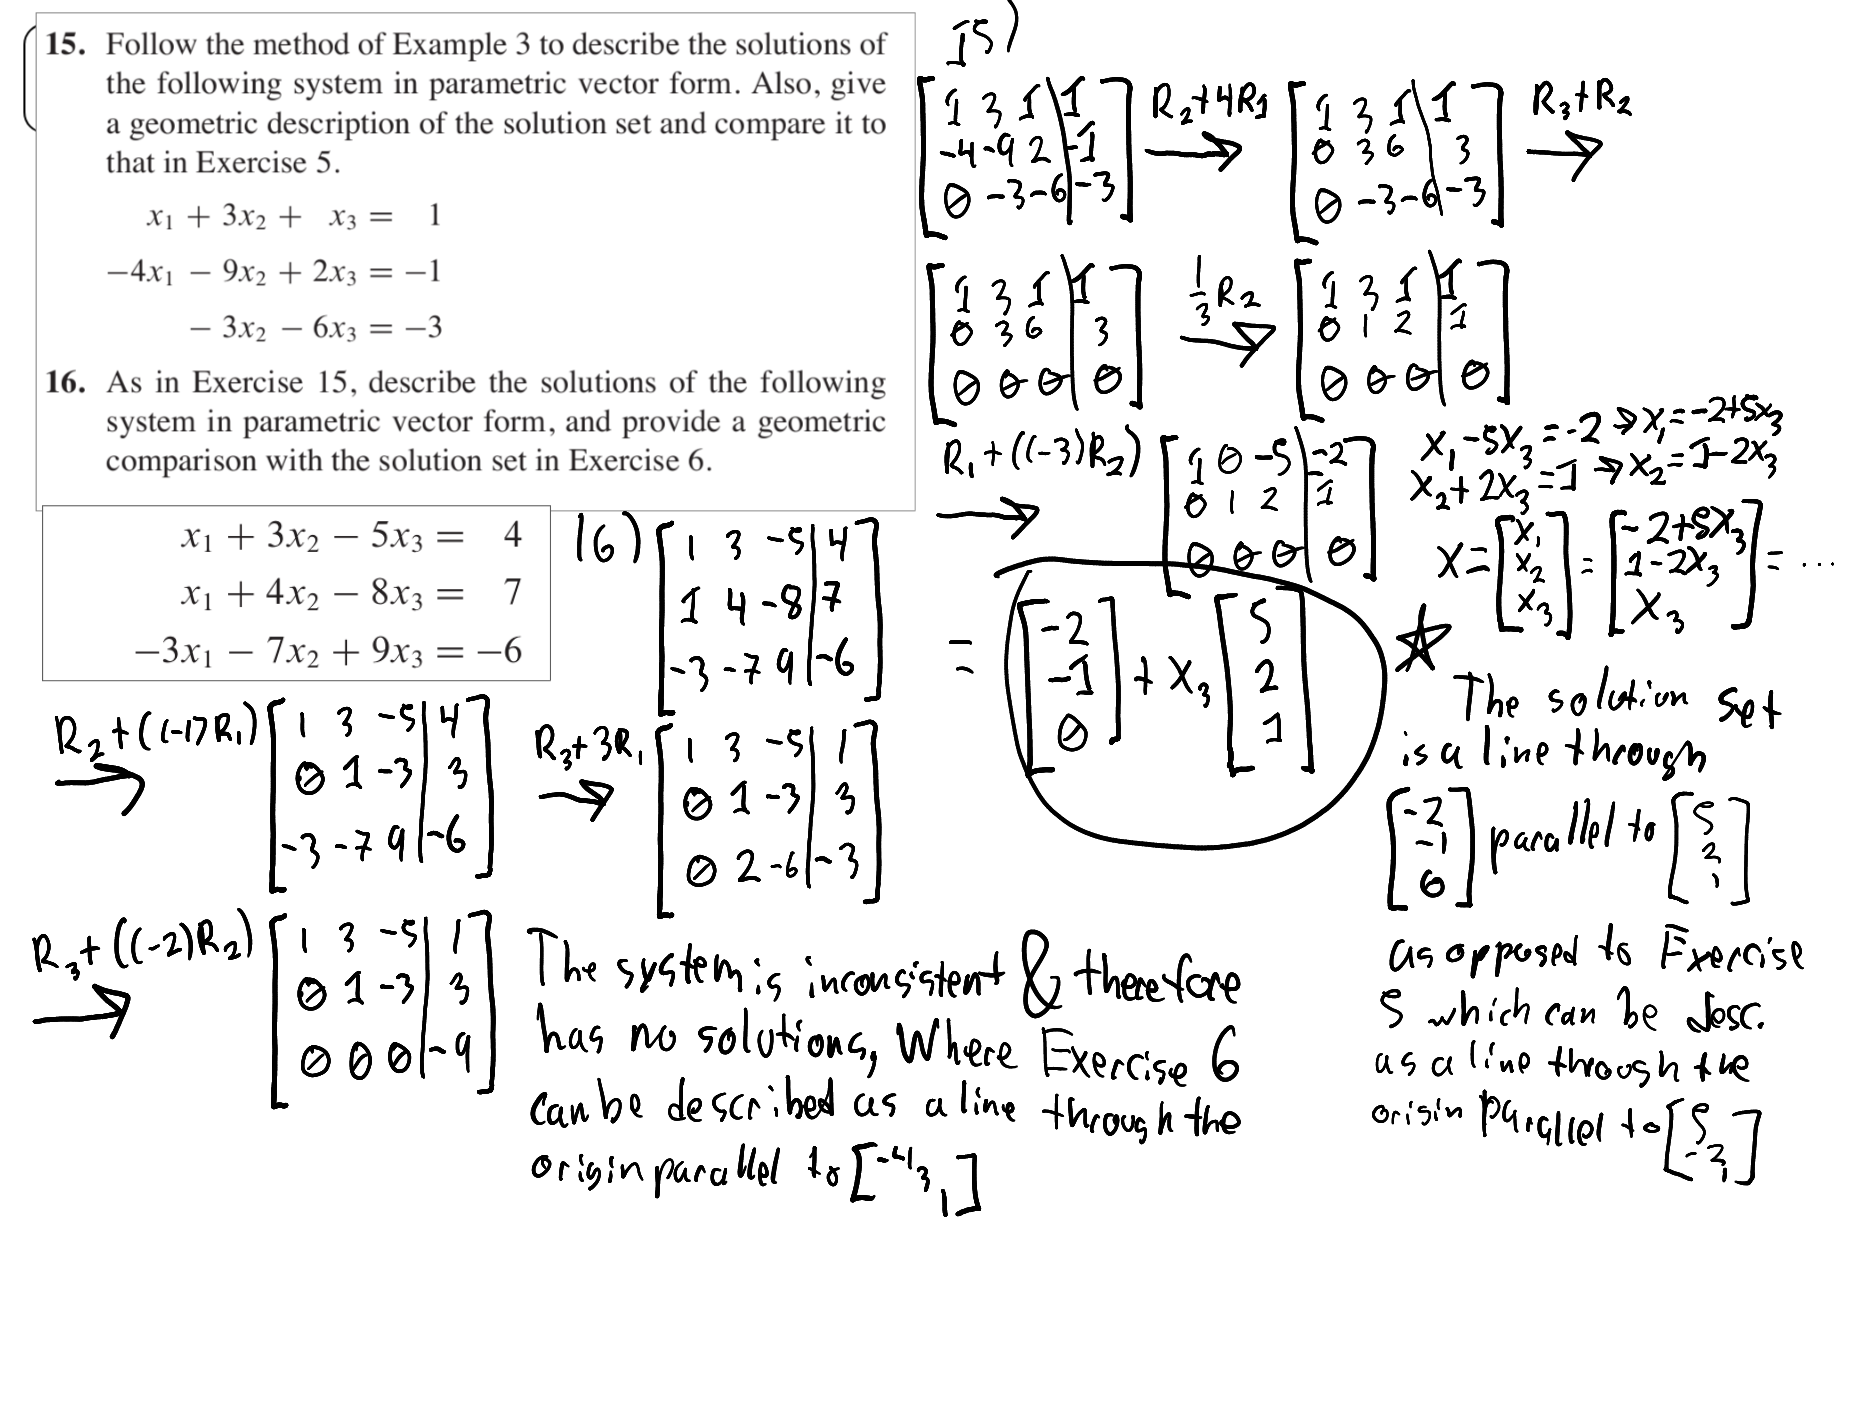 15. Follow the method of Example 3 to describe the solutions of
the following system in parametric vector form. Also, give
a geometric description of the solution set and compare it to
that in Exercise 5.
x₁ + 3x₂ + x₃ = 1
−4x₁ − 9x₂ + 2x₃ = −1
− 3x₂ − 6x₃ = −3
16. As in Exercise 15, describe the solutions of the following
system in parametric vector form, and provide a geometric
comparison with the solution set in Exercise 6.
x₁ + 3x₂ − 5x₃ = 4
x₁ + 4x₂ − 8x₃ = 7
−3x₁ − 7x₂ + 9x₃ = −6
15)
[1 3 1 | 1
-4 -9 2 | -1
0 -3 -6 | -3]
R₂+4R1
→
[1 3 1 | 1
0 3 6 | 3
0 -3 -6 | -3]
R₃+R₂
→
[1 3 1 | 1
0 3 6 | 3
0 0 0 | 0]
1/3 R₂
→
[1 3 1 | 1
0 1 2 | 1
0 0 0 | 0]
R₁+((-3)R₂)
→
[1 0 -5 | -2
0 1 2 | 1
0 0 0 | 0]
x₁-5x₃=-2 → x₁=-2+5x₃
x₂+2x₃=1 → x₂=1-2x₃
X=[x₁ x₂ x₃] = [-2+5x₃ 1-2x₃ x₃] = ...
= [-2 -1 0] + x₃ [5 2 1]
☆
The solution set
is a line through
[-2 -1 0] parallel to [5 2 1]
as opposed to Exercise
5 which can be desc.
as a line through the
origin parallel to [5 -2 1]
16)
[1 3 -5 | 4
1 4 -8 | 7
-3 -7 9 | -6]
R₂+((-1)R₁)
→
[1 3 -5 | 4
0 1 -3 | 3
-3 -7 9 | -6]
R₃+3R₁
→
[1 3 -5 | 1
0 1 -3 | 3
0 2 -6 | -3]
R₃+((-2)R₂)
→
[1 3 -5 | 1
0 1 -3 | 3
0 0 0 | -9]
The system is inconsistent & therefore
has no solutions, Where Exercise 6
can be described as a line through the
origin parallel to [-4 3 1]